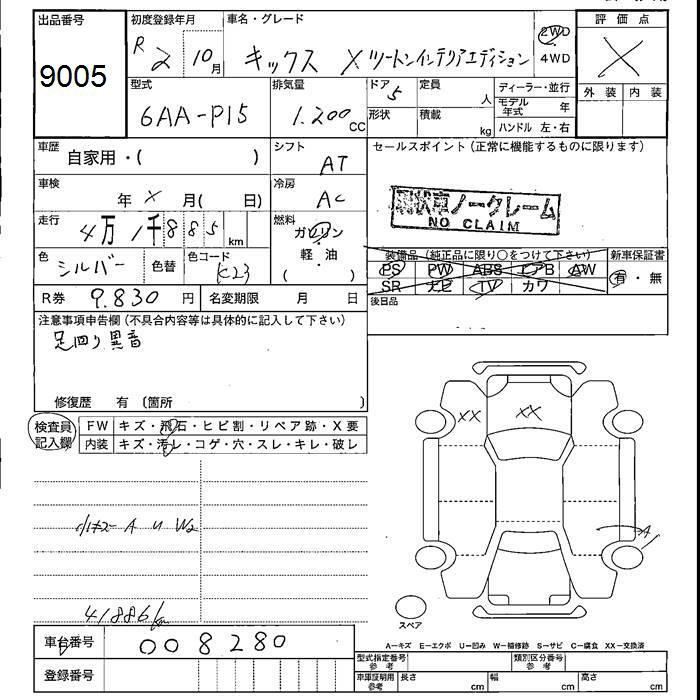 出品番号 初度登録年月 車名・グレード 評価点
9005 R2 10月 キックス Xツートンインテリアエディション 2WD 4WD X
型式 排気量 ドア 定員 ディーラー・並行 外装 内装
6AA-P15 1.200cc 5 人 モデル年式 年
形状 積載 kg ハンドル 左・右
車歴 自家用・( ) シフト AT セールスポイント(正常に機能するものに限ります)
車検 年 X 月( 日) 冷房 AC
現状車ノークレーム
NO CLAIM
走行 4万1千885km 燃料 ガソリン
軽・油
( )
色 シルバー 色替 色コード K23
装備品(純正品に限り○をつけて下さい) 新車保証書
PS PW ABS エアB AW 有・無
SR ナビ TV カワ
R券 9.830円 名変期限 月 日 後日品
注意事項申告欄(不具合内容等は具体的に記入して下さい)
足回り異音
修復歴 有 (箇所 )
検査員記入欄 FW キズ・飛石・ヒビ割・リペア跡・X要
内装 キズ・汚レ・コゲ・穴・スレ・キレ・破レ
XX XX
A
A U W2
41886km
スペア
A-キズ E-エクボ U-凹み W-補修跡 S-サビ C-腐食 XX-交換済
車台番号 008280
型式指定番号 参考 類別区分番号 参考
登録番号 車庫証明用 参考 長さ cm 幅 cm 高さ cm